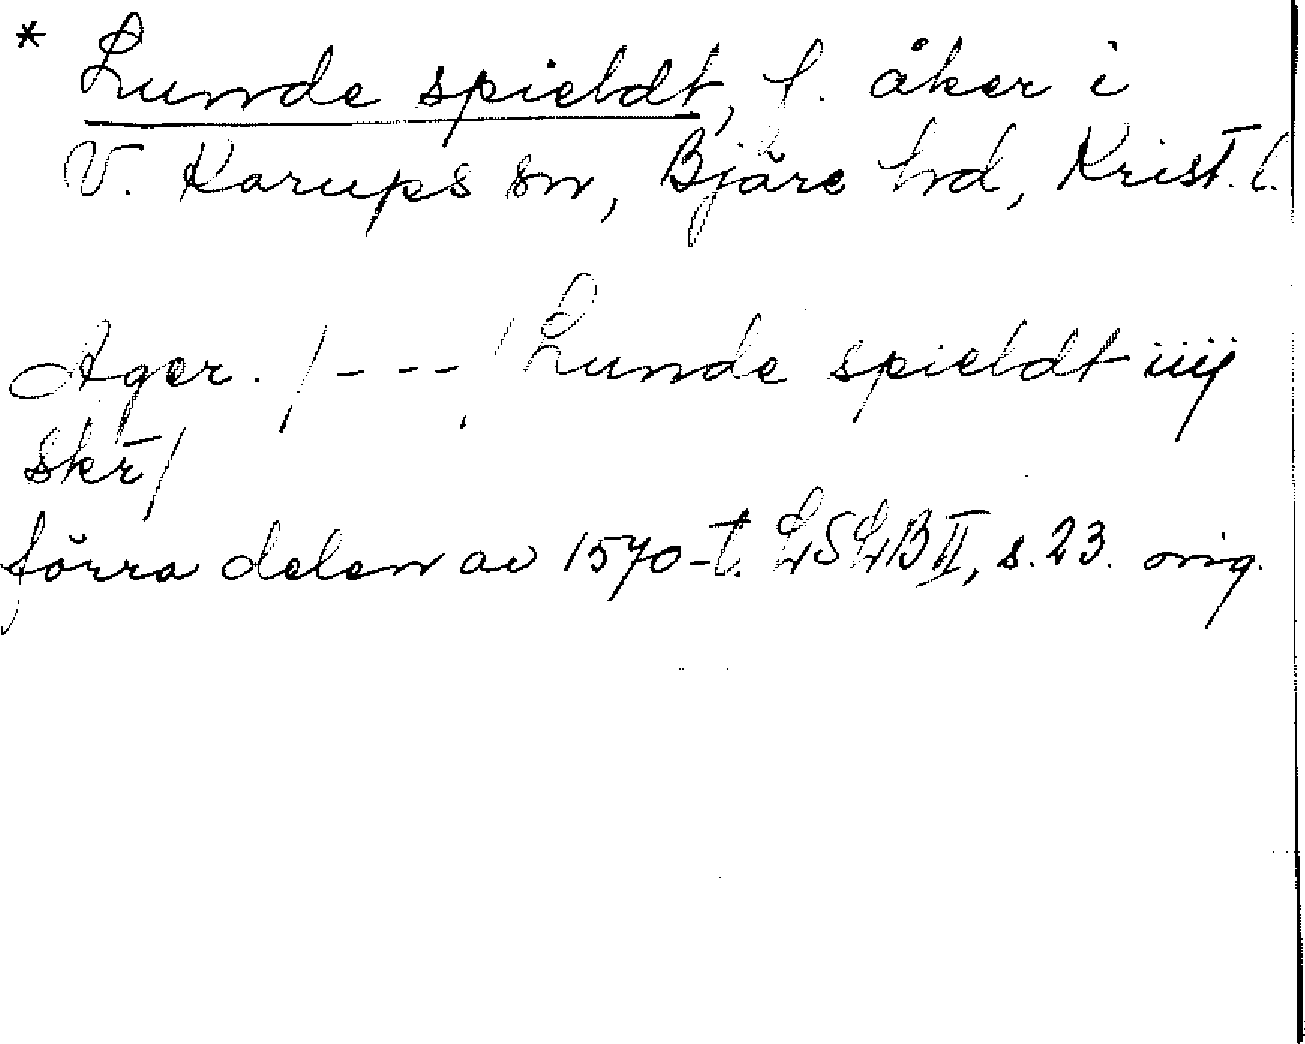 * Lunde spieldt, f. åker i
V. Karups sn, Bjäre hd, Krist. l.
Ager. /---/ Lunde spieldt iiij
skr̄/
förra delen av 1570-t. LSLB II, s. 23. orig.